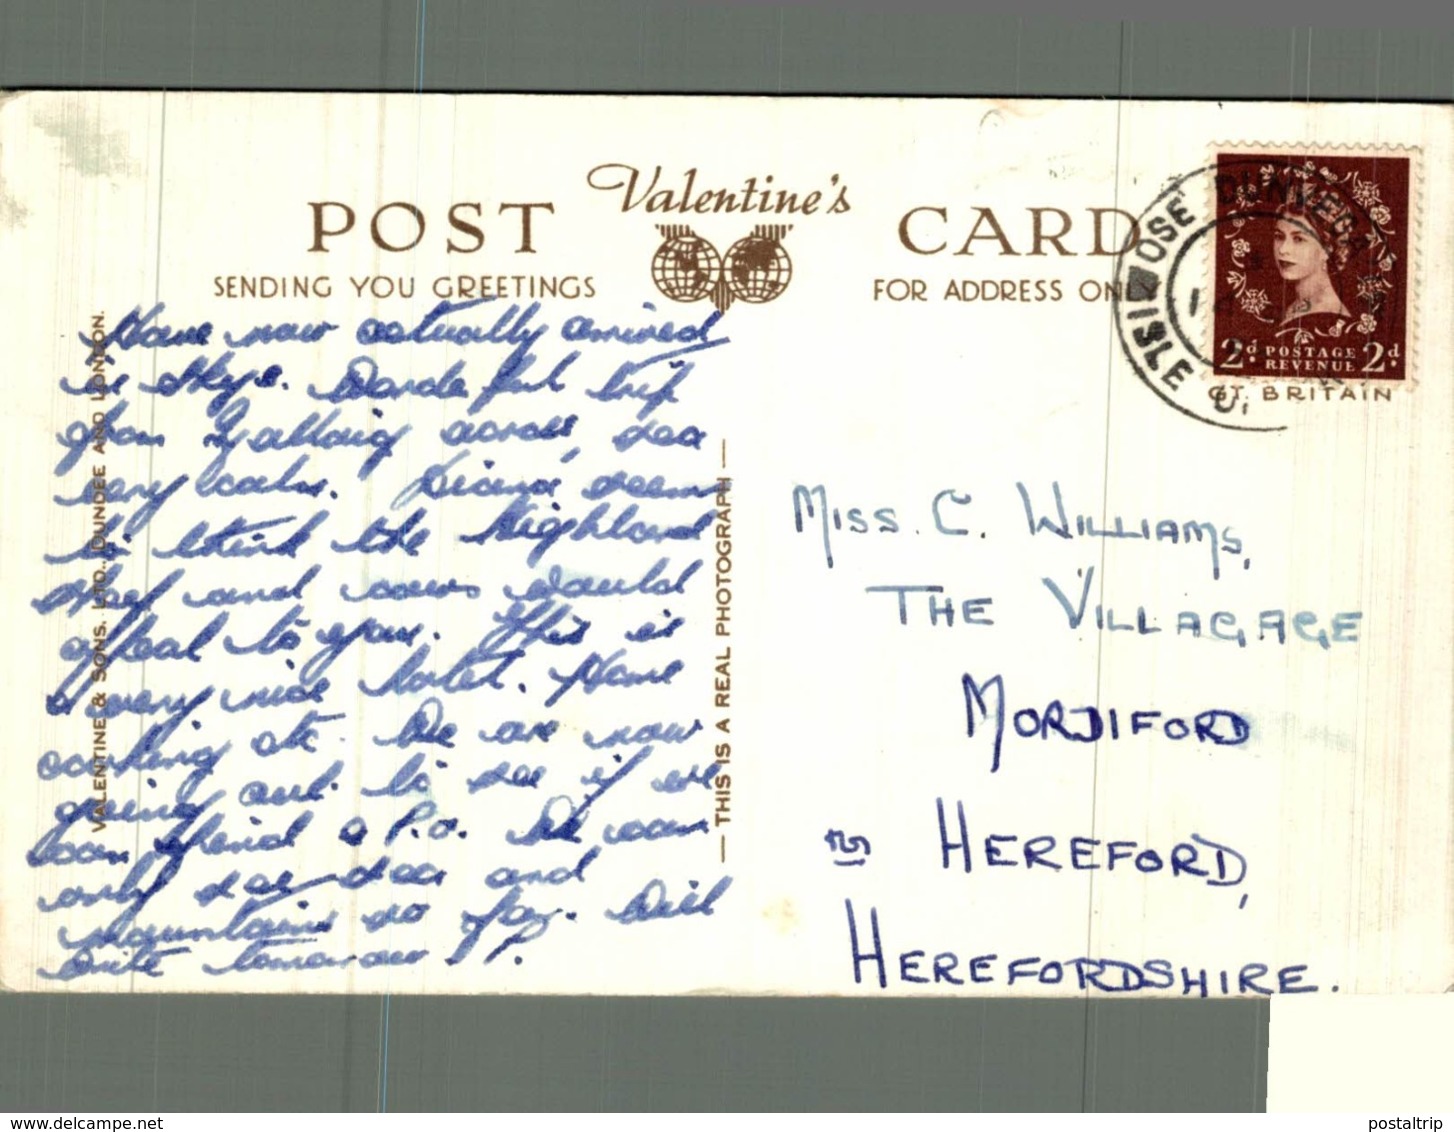 POST Valentine's CARD
SENDING YOU GREETINGS
FOR ADDRESS ON
OSE DUNVEGAN
ISLE O
2d POSTAGE REVENUE 2d
GT. BRITAIN
Have now actually arrived
in Skye. Wonderful trip
from Mallaig across, sea
very calm. Diana seems
to think the Highland
and cows would
appeal to you. This is
a very nice hotel. Have
We are now
going out to see if we
can find a P.O. We can
only see sea and
mountains so far. Will
write tomorrow P.
VALENTINE & SONS, LTD., DUNDEE AND LONDON.
— THIS IS A REAL PHOTOGRAPH —
MISS. C. WILLIAMS,
THE VILLAGAGE
MORDIFORD
HEREFORD,
HEREFORDSHIRE.
https://www.delcampe.net
postaltrip